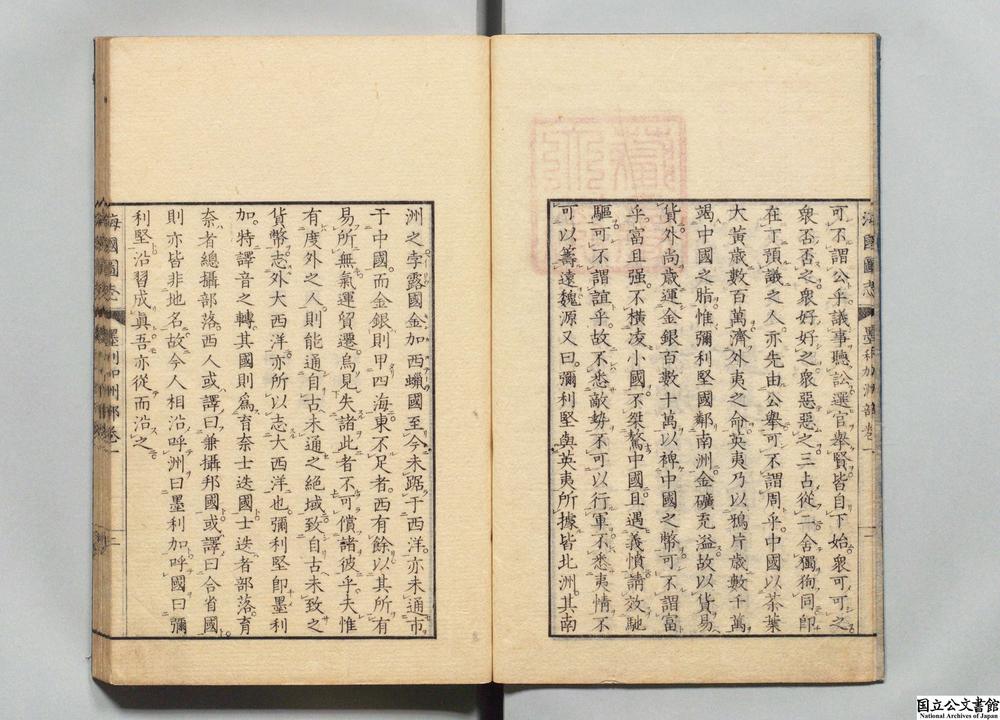 可不謂公乎議事聽訟選官舉賢皆自下始衆可可之
衆否否之衆好好之衆惡惡之三占從二舍獨徇同卽
在下預議之人亦先由公舉可不謂周乎中國以茶葉
大黃歲數百萬濟外夷之命英夷乃以鴉片歲數千萬
竭中國之脂惟彌利堅國鄰南洲金礦充溢故以貨易
貨外尚歲運金銀百數十萬以裨中國之幣可不謂富
乎富且强不橫凌小國不桀驁中國且遇義憤請效馳
驅可不謂誼乎故不悉敵勢不可以行軍不悉夷情不
可以籌遠魏源又曰彌利堅與英夷所據皆北洲其南
海國圖志
墨利加洲部卷一
洲之孛露國金加西蠟國至今未踞于西洋亦未通市
于中國而金銀則甲四海東不足者西有餘以其所有
易所無氣運貿遷烏見失諸此者不可償諸彼乎夫惟
有度外之人則能通自古未通之絕域致自古未致之
貨幣志外大西洋亦所以志大西洋也彌利堅卽墨利
加特譯音之轉其國則爲育奈士迭國士迭者部落育
奈者總攝部落西人或譯曰兼攝邦國或譯曰合省國
則亦皆非地名故今人相沿呼洲曰墨利加呼國曰彌
利堅沿習成眞吾亦從而沿之
海國圖志
墨利加洲部卷一
国立公文書館
National Archives of Japan